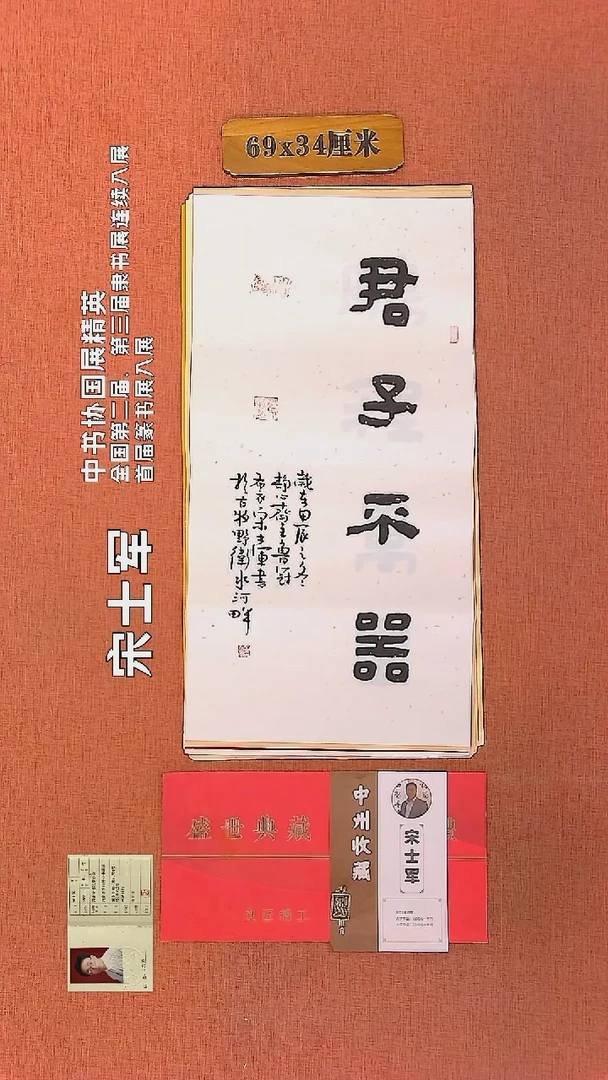 69x34厘米
宋士军
中书协国展精英
全国第二届、第三届隶书展连续入展
首届篆书展入展
君
子
不
器
歲在甲辰之冬
静心齋主魯冠
布衣宋士軍書
於古牧野衛水河畔
盛世典藏
中州收藏
宋士军